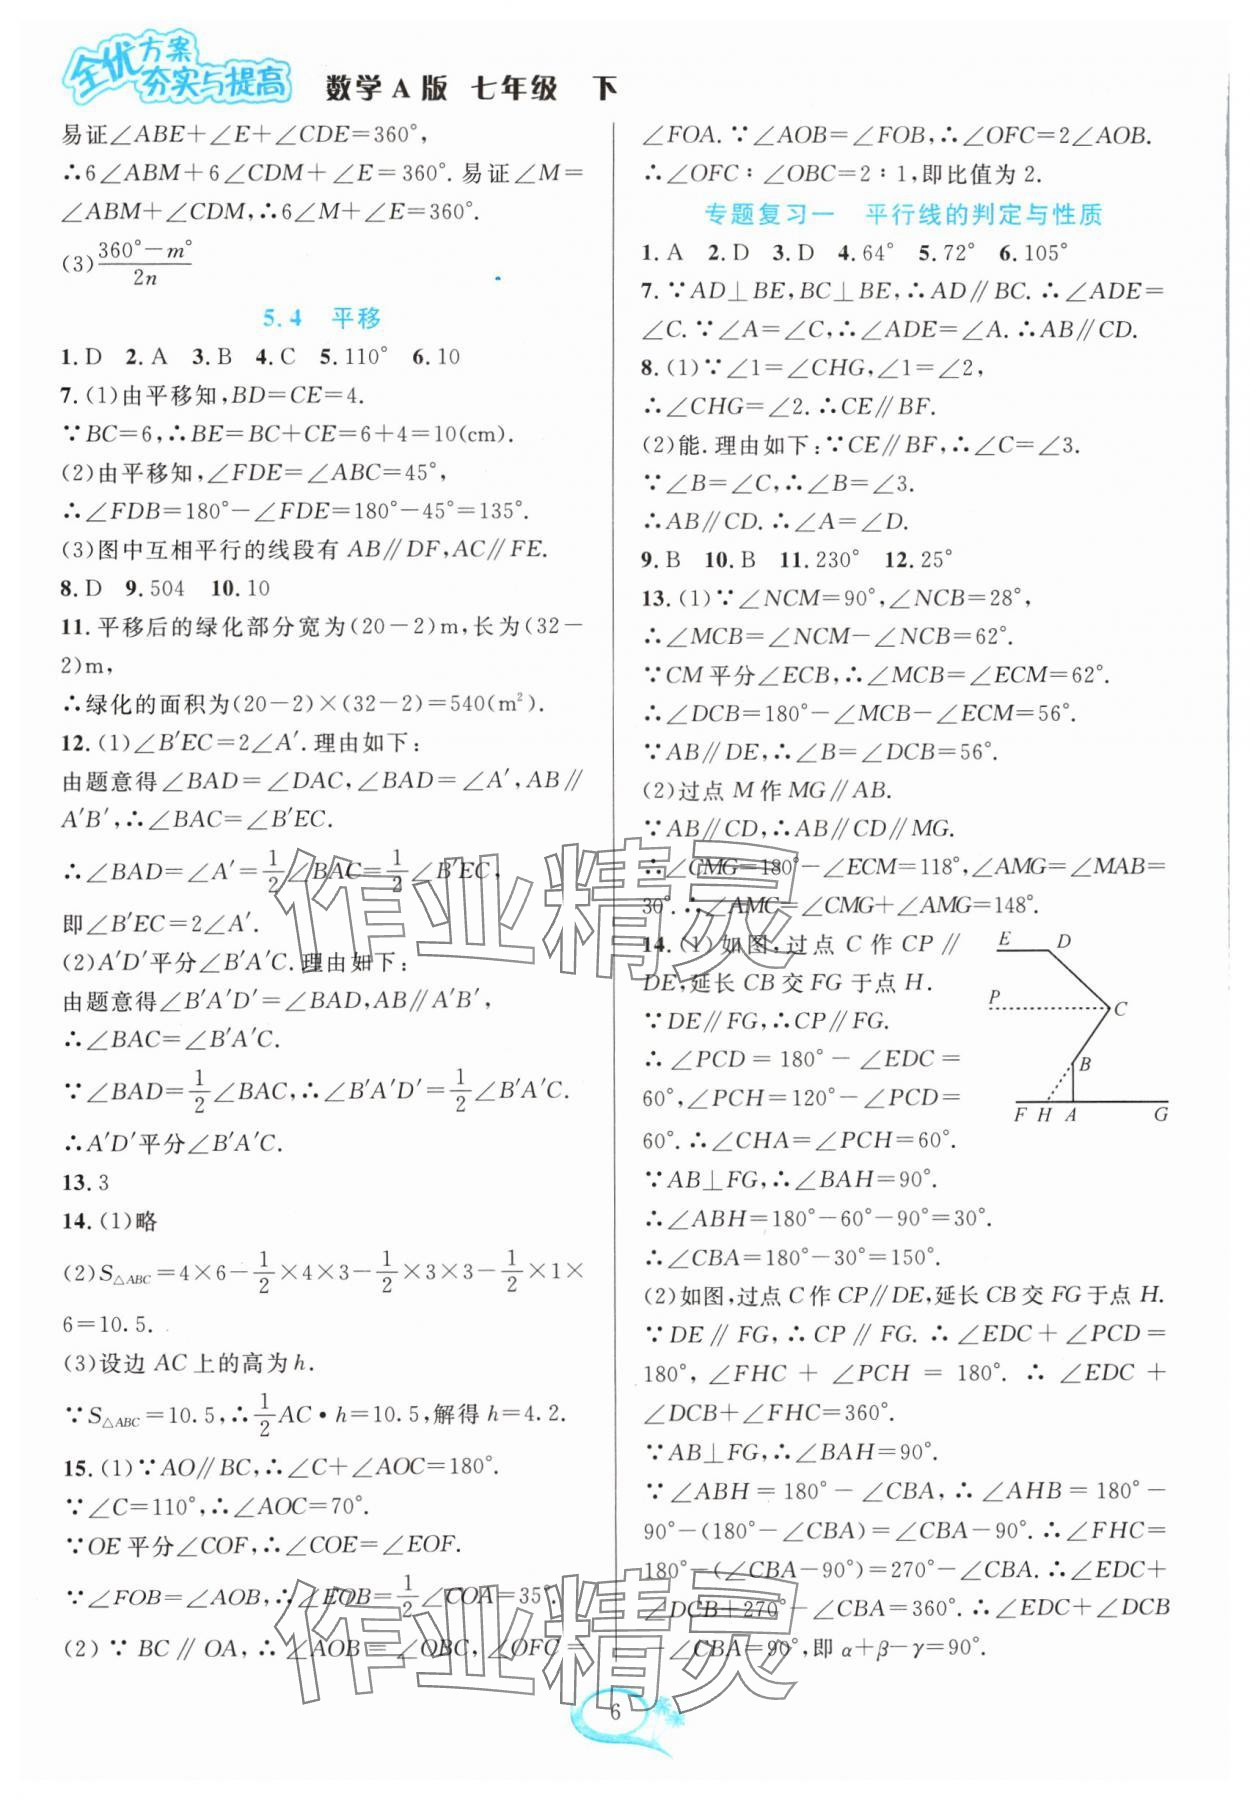 全优方案
夯实与提高
数学A版 七年级 下
易证∠ABE+∠E+∠CDE=360°,
∴6∠ABM+6∠CDM+∠E=360°.易证∠M=
∠ABM+∠CDM,∴6∠M+∠E=360°.
(3)(360°-m°)/2n
5.4 平移
1.D 2.A 3.B 4.C 5.110° 6.10
7.(1)由平移知,BD=CE=4.
∵BC=6,∴BE=BC+CE=6+4=10(cm).
(2)由平移知,∠FDE=∠ABC=45°,
∴∠FDB=180°-∠FDE=180°-45°=135°.
(3)图中互相平行的线段有AB∥DF,AC∥FE.
8.D 9.504 10.10
11.平移后的绿化部分宽为(20-2)m,长为(32-
2)m,
∴绿化的面积为(20-2)×(32-2)=540(m²).
12.(1)∠B′EC=2∠A′.理由如下:
由题意得∠BAD=∠DAC,∠BAD=∠A′,AB∥
A′B′,∴∠BAC=∠B′EC.
∴∠BAD=∠A′=1/2∠BAC=1/2∠B′EC,
即∠B′EC=2∠A′.
(2)A′D′平分∠B′A′C.理由如下:
由题意得∠B′A′D′=∠BAD,AB∥A′B′,
∴∠BAC=∠B′A′C.
∵∠BAD=1/2∠BAC,∴∠B′A′D′=1/2∠B′A′C.
∴A′D′平分∠B′A′C.
13.3
14.(1)略
(2)S△ABC=4×6-1/2×4×3-1/2×3×3-1/2×1×
6=10.5.
(3)设边AC上的高为h.
∵S△ABC=10.5,∴1/2AC•h=10.5,解得h=4.2.
15.(1)∵AO∥BC,∴∠C+∠AOC=180°.
∵∠C=110°,∴∠AOC=70°.
∵OE平分∠COF,∴∠COE=∠EOF.
∵∠FOB=∠AOB,∴∠EOB=1/2∠COA=35°.
(2)∵BC∥OA,∴∠AOB=∠OBC,∠OFC=
∠FOA.∵∠AOB=∠FOB,∴∠OFC=2∠AOB.
∴∠OFC∶∠OBC=2∶1,即比值为2.
专题复习一 平行线的判定与性质
1.A 2.D 3.D 4.64° 5.72° 6.105°
7.∵AD⊥BE,BC⊥BE,∴AD∥BC.∴∠ADE=
∠C.∵∠A=∠C,∴∠ADE=∠A.∴AB∥CD.
8.(1)∵∠1=∠CHG,∠1=∠2,
∴∠CHG=∠2.∴CE∥BF.
(2)能.理由如下:∵CE∥BF,∴∠C=∠3.
∵∠B=∠C,∴∠B=∠3.
∴AB∥CD.∴∠A=∠D.
9.B 10.B 11.230° 12.25°
13.(1)∵∠NCM=90°,∠NCB=28°,
∴∠MCB=∠NCM-∠NCB=62°.
∵CM平分∠ECB,∴∠MCB=∠ECM=62°.
∴∠DCB=180°-∠MCB-∠ECM=56°.
∵AB∥DE,∴∠B=∠DCB=56°.
(2)过点M作MG∥AB.
∵AB∥CD,∴AB∥CD∥MG.
∴∠CMG=180°-∠ECM=118°,∠AMG=∠MAB=
30°.∴∠AMC=∠CMG+∠AMG=148°.
14.(1)如图,过点C作CP∥
DE,延长CB交FG于点H.
∵DE∥FG,∴CP∥FG.
∴∠PCD=180°-∠EDC=
60°,∠PCH=120°-∠PCD=
60°.∴∠CHA=∠PCH=60°.
E D
P
C
B
F H A G
∵AB⊥FG,∴∠BAH=90°.
∴∠ABH=180°-60°-90°=30°.
∴∠CBA=180°-30°=150°.
(2)如图,过点C作CP∥DE,延长CB交FG于点H.
∵DE∥FG,∴CP∥FG.∴∠EDC+∠PCD=
180°,∠FHC+∠PCH=180°.∴∠EDC+
∠DCB+∠FHC=360°.
∵AB⊥FG,∴∠BAH=90°.
∵∠ABH=180°-∠CBA,∴∠AHB=180°-
90°-(180°-∠CBA)=∠CBA-90°.∴∠FHC=
180°-(∠CBA-90°)=270°-∠CBA.∴∠EDC+
∠DCB+270°-∠CBA=360°.∴∠EDC+∠DCB
-∠CBA=90°,即α+β-γ=90°.
作业精灵
作业精灵
6